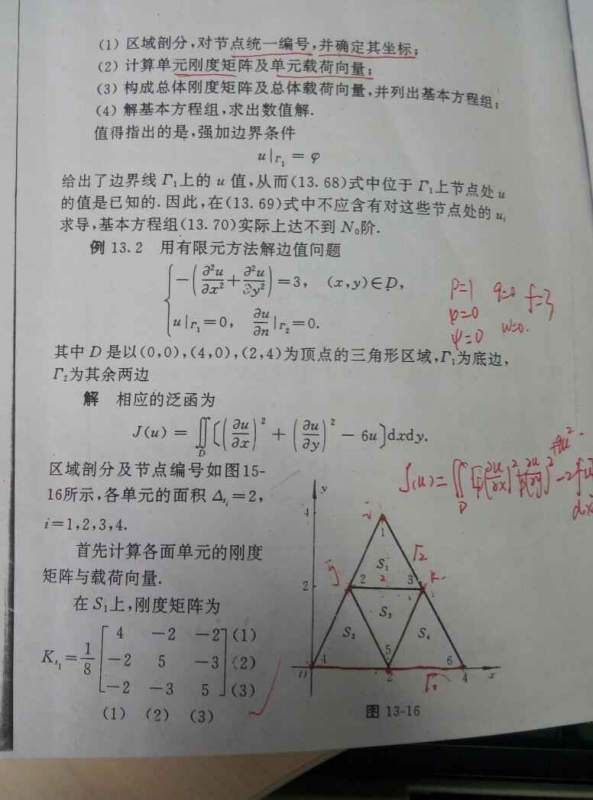 (1) 区域剖分,对节点统一编号,并确定其坐标;
(2) 计算单元刚度矩阵及单元载荷向量;
(3) 构成总体刚度矩阵及总体载荷向量,并列出基本方程组;
(4) 解基本方程组,求出数值解.
值得指出的是,强加边界条件
u|Γ₁ = φ
给出了边界线 Γ₁上的 u 值,从而(13.68)式中位于 Γ₁上节点处 u
的值是已知的. 因此,在(13.69)式中不应含有对这些节点处的 uᵢ
求导,基本方程组(13.70)实际上达不到 N₀阶.
例 13.2 用有限元方法解边值问题
−(∂²u/∂x² + ∂²u/∂y²) = 3, (x,y)∈D,
u|Γ₁ = 0, ∂u/∂n|Γ₂ = 0.
p=1 q=0 f=3
φ=0
ψ=0 w=0.
其中 D 是以(0,0),(4,0),(2,4)为顶点的三角形区域,Γ₁为底边,
Γ₂为其余两边
解 相应的泛函为
J(u) = ∬_D [(∂u/∂x)² + (∂u/∂y)² − 6u]dxdy.
区域剖分及节点编号如图15-
16所示,各单元的面积 Δᵢ=2,
i=1,2,3,4.
首先计算各面单元的刚度
矩阵与载荷向量.
在 S₁上,刚度矩阵为
Kₛ₁ = 1/8
4 −2 −2 (1)
−2 5 −3 (2)
−2 −3 5 (3)
(1) (2) (3)
y
4
1
S₁
Γ₂
2
2 2 3 K
S₃
S₂ S₄
4 5 6
O 2 4 x
Γ₁
图 13-16